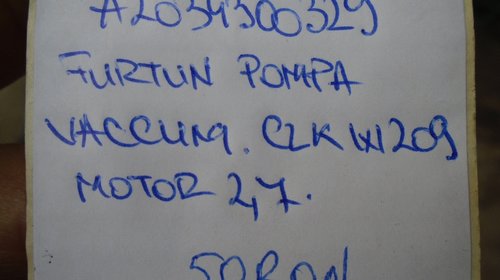 A2034300329
FURTUN POMPA
VACCUM. CLK W209
MOTOR 2,7.
50RON